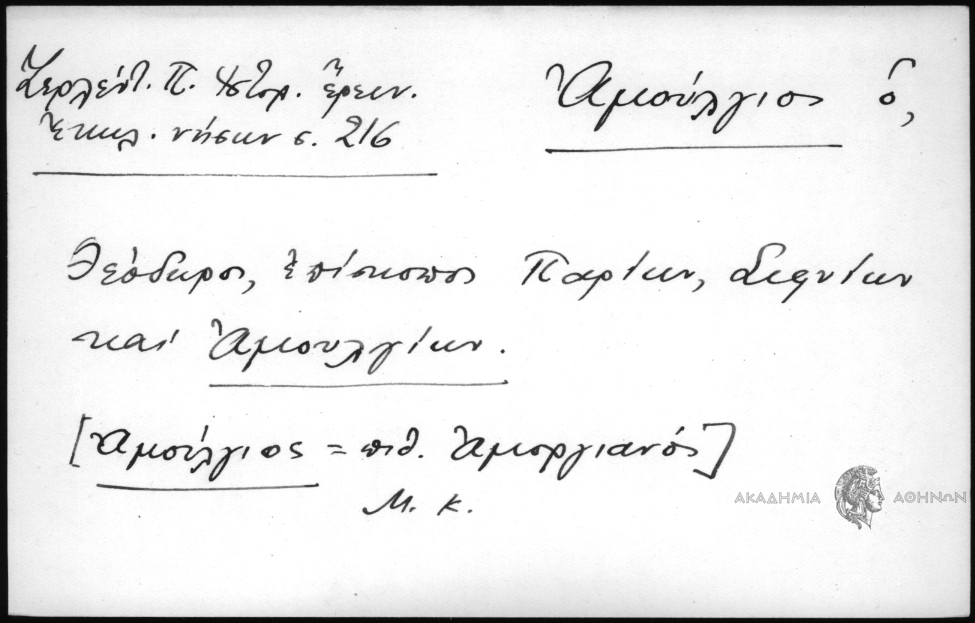 Ζερλέντ. Π. Ἱστορ. ἔρευν.
Ἐκκλ. νήσων σ. 216
Ἀμούλγιος ὁ,
Θεόδωρος, ἐπίσκοπος Παρίων, Σιφνίων
καὶ Ἀμουλγίων.
[Ἀμούλγιος = πιθ. Ἀμοργιανός]
Μ. Κ.
ΑΚΑΔΗΜΙΑ ΑΘΗΝΩΝ